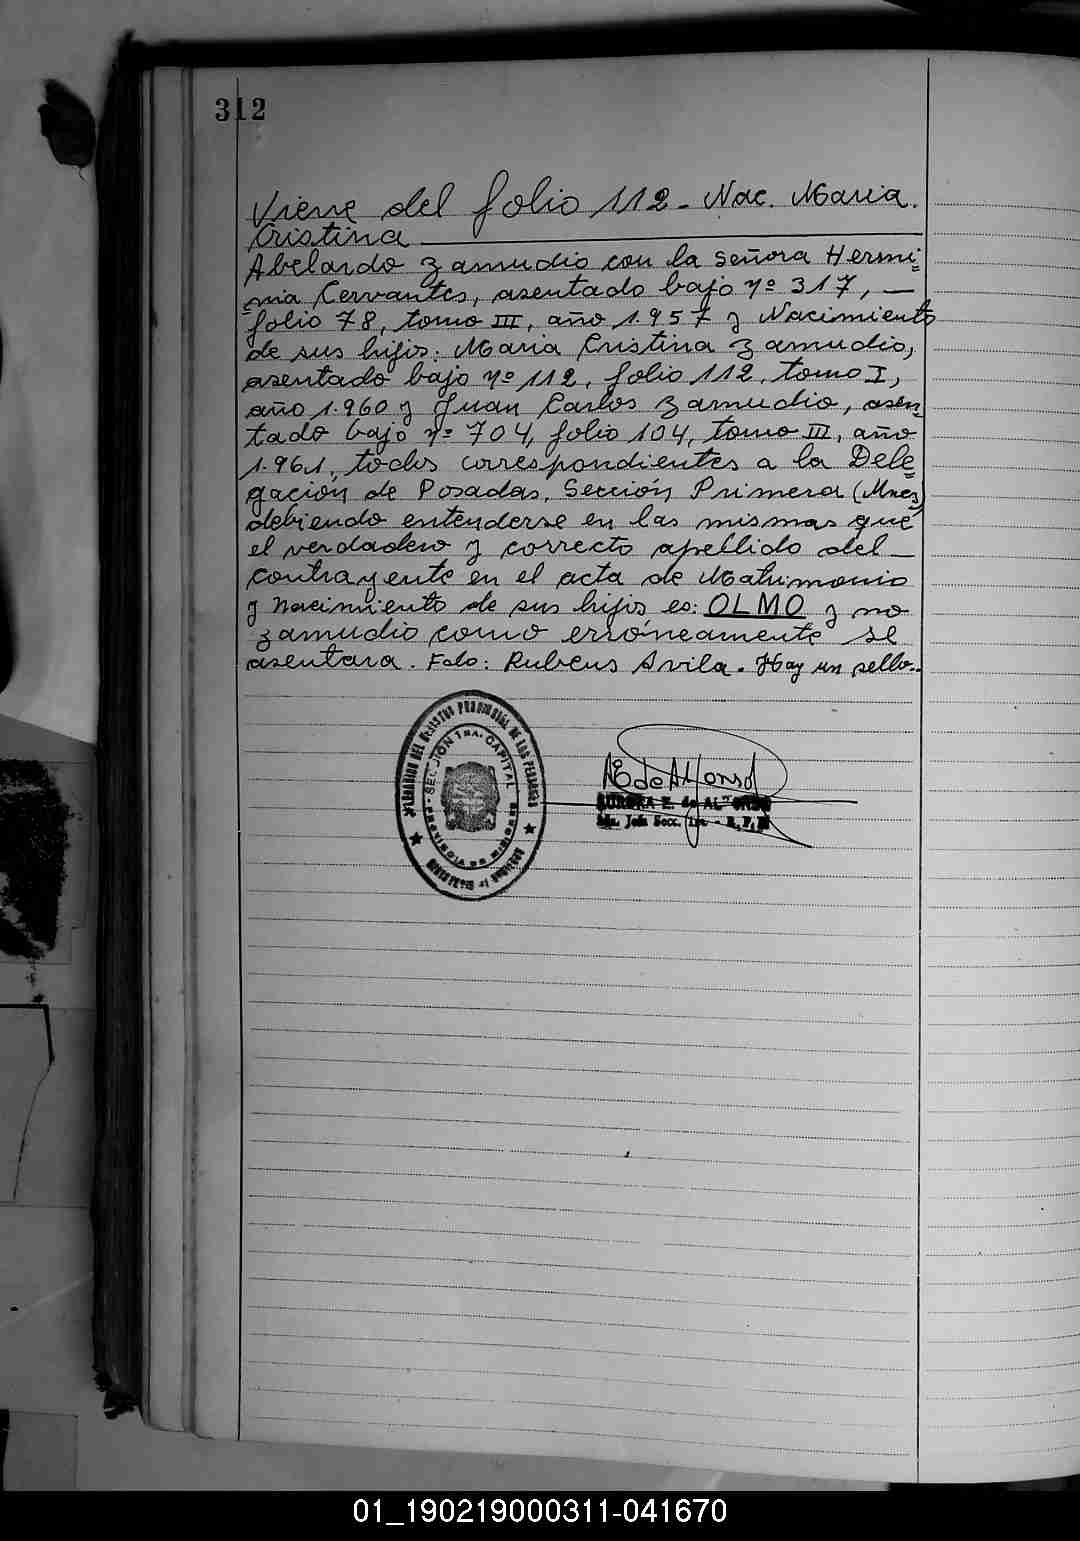 312
Viene del folio 112 - Nac. Maria.
Cristina
Abelardo Zamudio con la señora Hermi=
=nia Cervantes, asentado bajo nº 317, —
folio 78, tomo III, año 1.957 y Nacimiento
de sus hijos: Maria Cristina Zamudio,
asentado bajo nº 112, folio 112, tomo I,
año 1.960 y Juan Carlos Zamudio, asen=
tado bajo nº 704, folio 104, tomo III, año
1.961, todos correspondientes a la Dele=
gación de Posadas, Sección Primera (Mnes)
debiendo entenderse en las mismas que
el verdadero y correcto apellido del —
contrayente en el acta de Matrimonio
y nacimiento de sus hijos es: OLMO y no
Zamudio como erróneamente se
asentara. Fdo: Rubens Avila. Hay un sello.-
DEL REGISTRO PROVINCIAL DE LAS PERSONAS
SECCION 1RA. CAPITAL
PROVINCIA DE MISIONES
AE de Alfonso
AURORA E. de ALFONSO
Jefa Secc. 1ra - R.P.P.
01_190219000311-041670